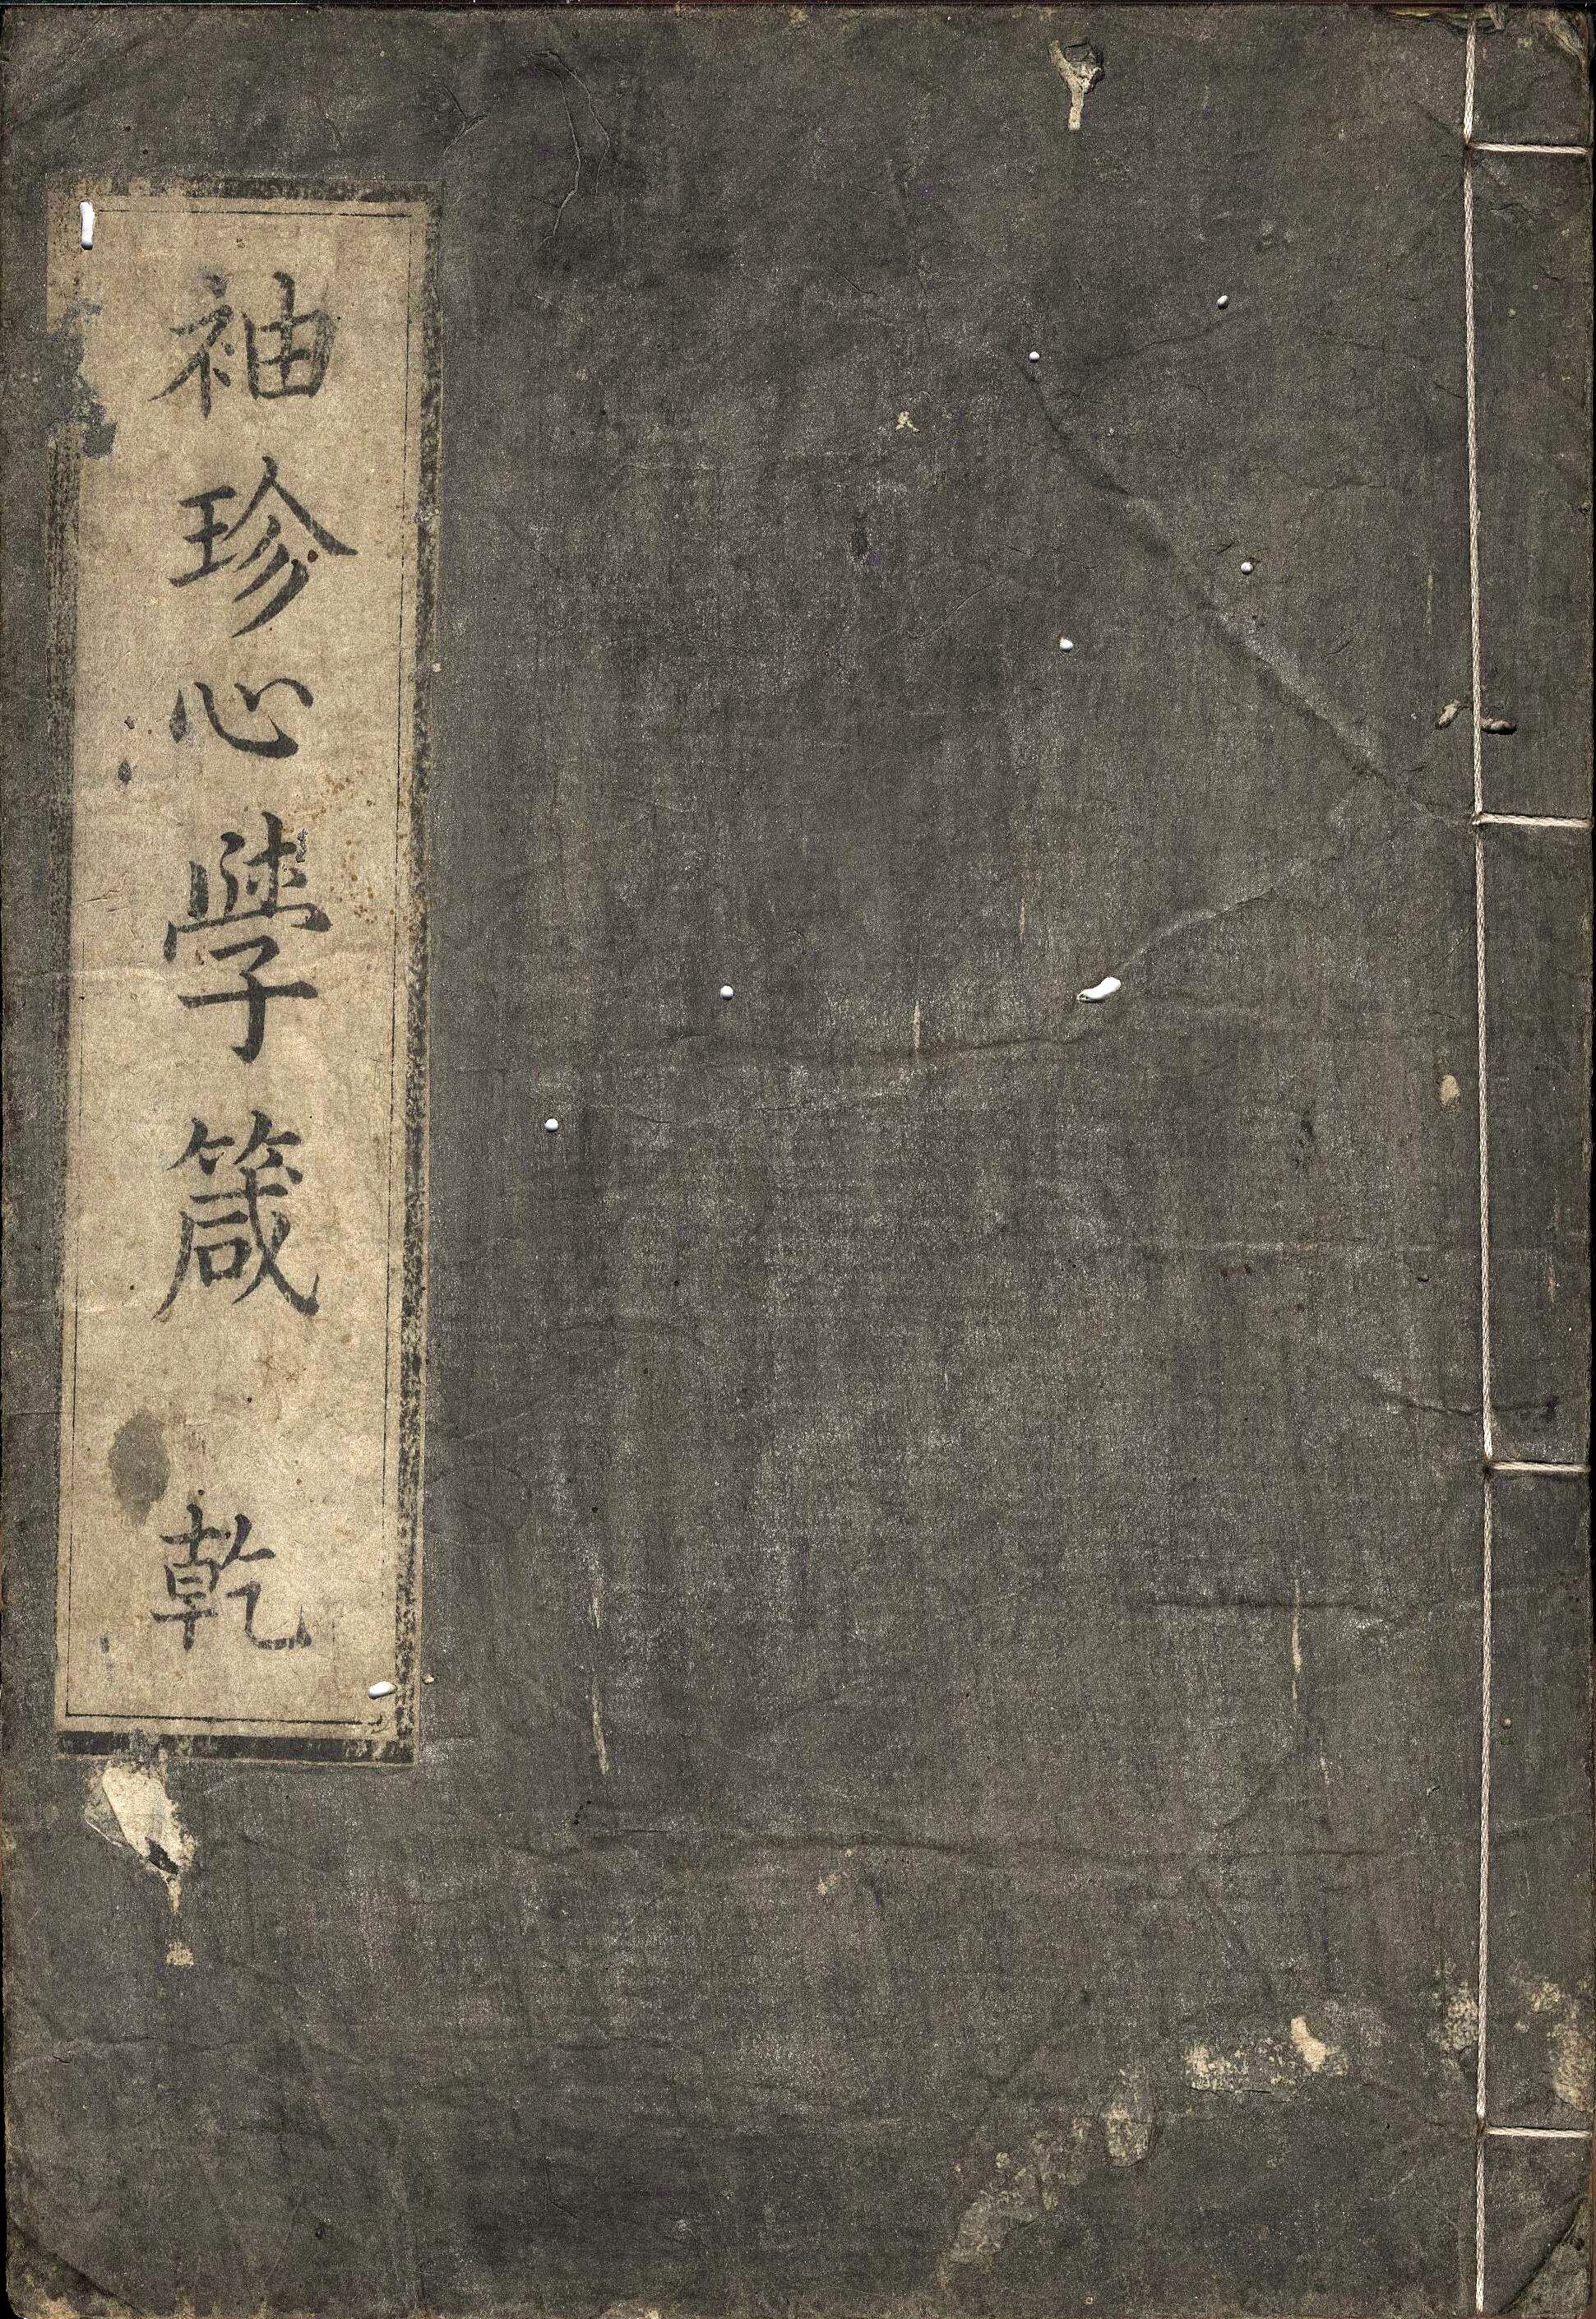 袖珍心學箴 乾